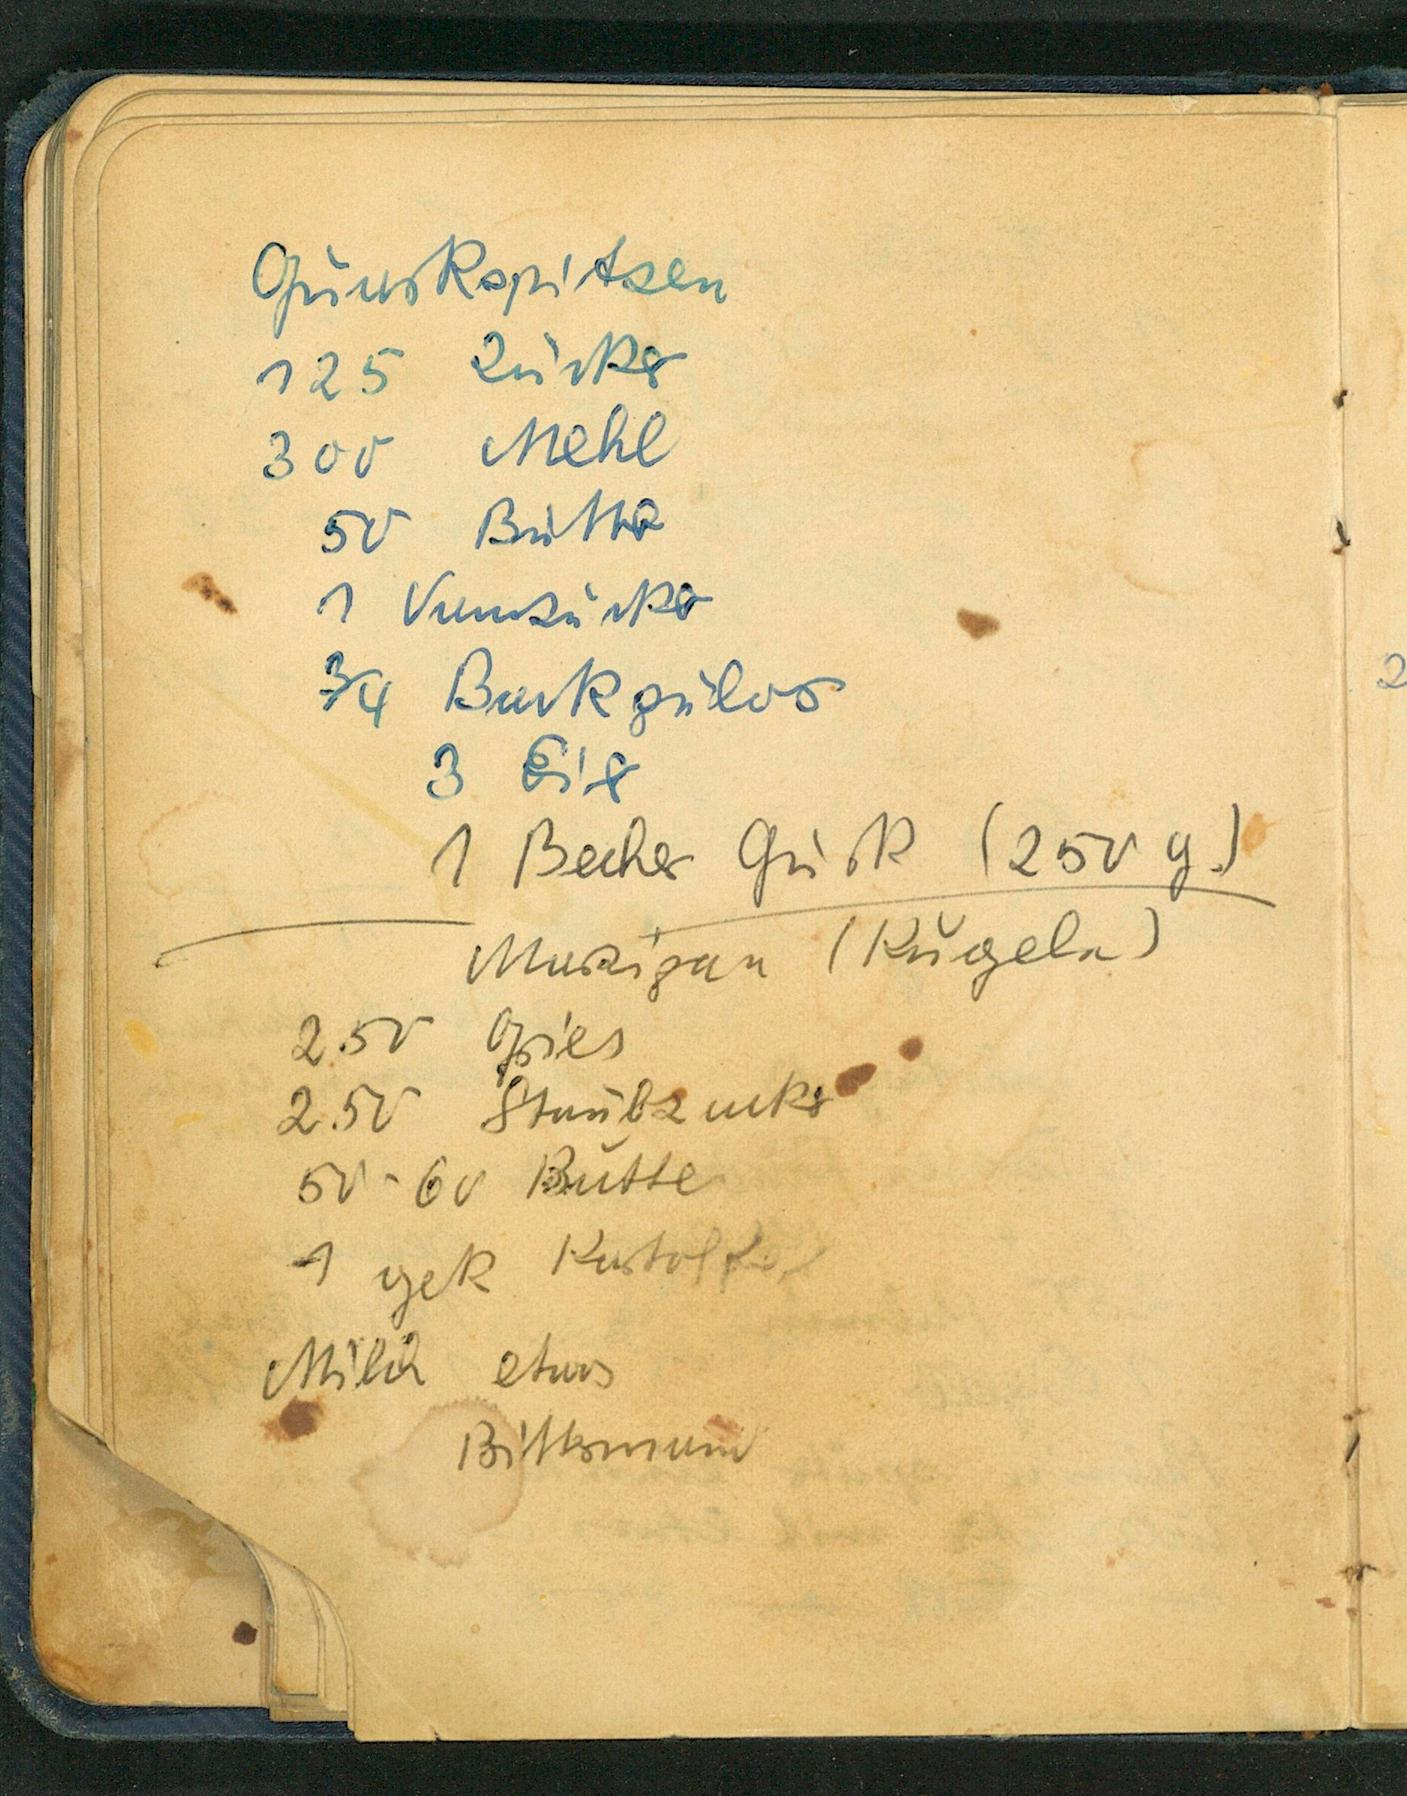 Quarkspitzen
125 Zucker
300 Mehl
50 Butter
1 Vanzucker
3/4 Backpulver
3 Eier
1 Becher Quark (250 g.)
Marzipan (Kugeln)
250 Gries
250 Staubzucker
50-60 Butte
1 gek Kartoffel
Milch etwas
Bittermand
2